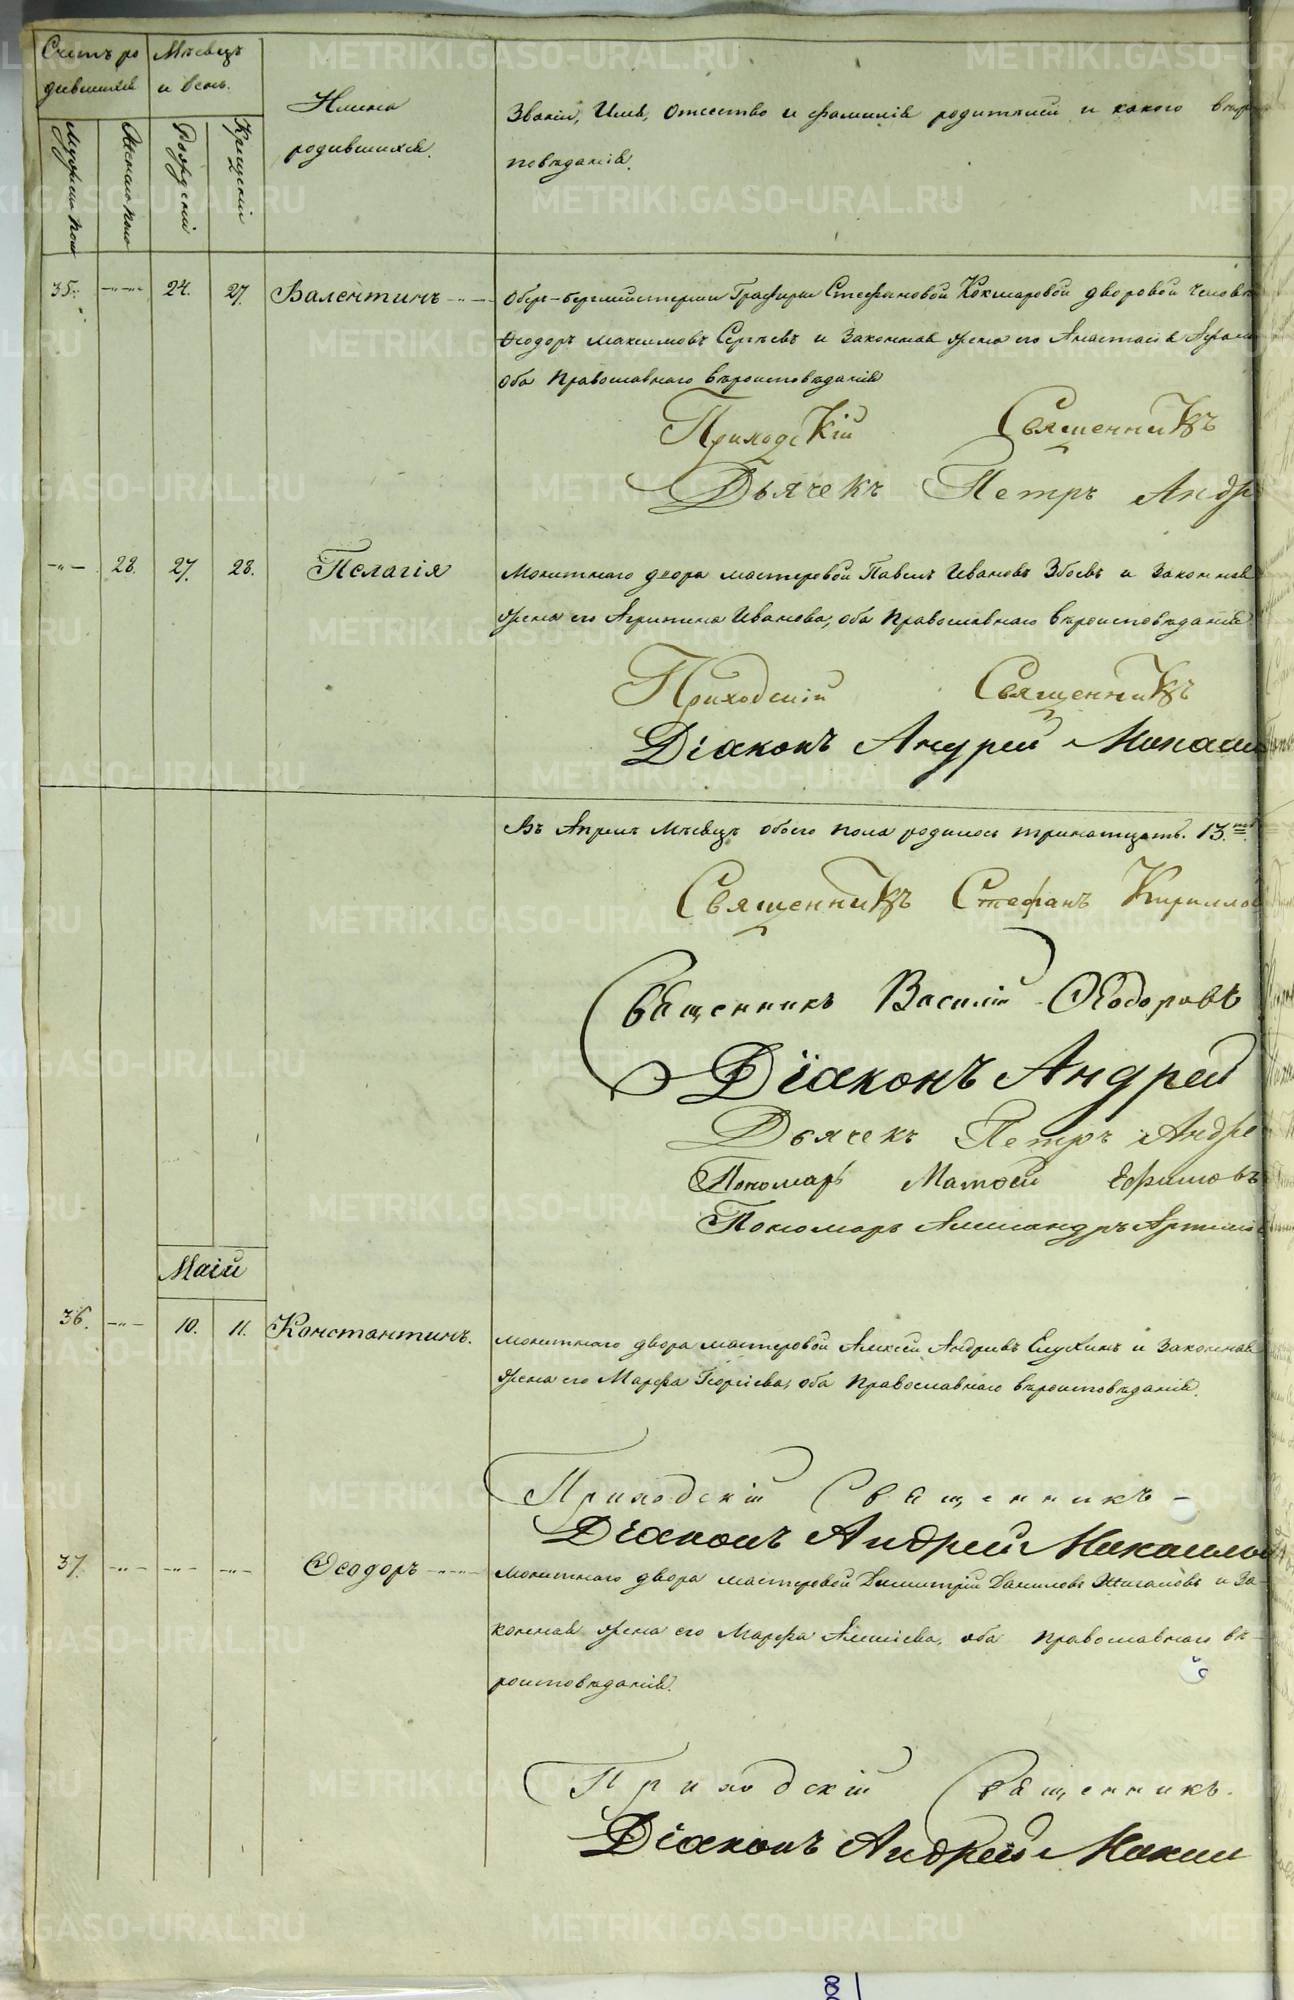 Счетъ ро
дившихся
Мѣсяцъ
и день.
Имена
родившихся.
Званіе, Имя, Отчество и фамилія родителей и какого вѣро
повѣданія.
Мужеска пола
Женска пола
Рожденія
Крещенія
35. —"— 24. 27. Валентинъ —"— Обер-бергмейстерши Графири Стефановой Кокшаровой дворовой человѣкъ
Ѳеодоръ Максимовъ Сергѣевъ и законная жена его Анастасія
Оба Православнаго вѣроисповѣданія
Приходскій Священникъ
Дьячекъ Петръ Андр
—"— 28. 27. 28. Пелагія Монетнаго двора мастеровой Павелъ Ивановъ Зboевъ и законная
жена его Агрипина Иванова, оба Православнаго вѣроисповѣданія
Приходскій Священникъ
Діаконъ Андрей Михаил
Въ Апрѣлѣ Мѣсяцѣ обоего пола родилось тринатцать. 13.
Священникъ Стефанъ Кириллов
Священникъ Василій Ѳеодоровъ
Діаконъ Андрей
Дьячекъ Петръ Андре
Пономарь Матѳей Ефимовъ
Пономарь Александръ Артемье
Маій
36. —"— 10. 11. Константинъ. Монетнаго двора мастеровой Алексѣй Андреевъ и законная
жена его Марфа Георгіева, оба Православнаго вѣроисповѣданія.
Приходскій Священникъ —
Діаконъ Андрей Михаилов
37. —"— —"— —"— Ѳеодоръ —"— Монетнаго двора мастеровой Димитрій Даниловъ Жигаловъ и за-
конная жена его Марфа Алексіева, оба Православнаго вѣ-
роисповѣданія.
Приходскій Священникъ.
Діаконъ Андрей Михаи
81
METRIKI.GASO-URAL.RU